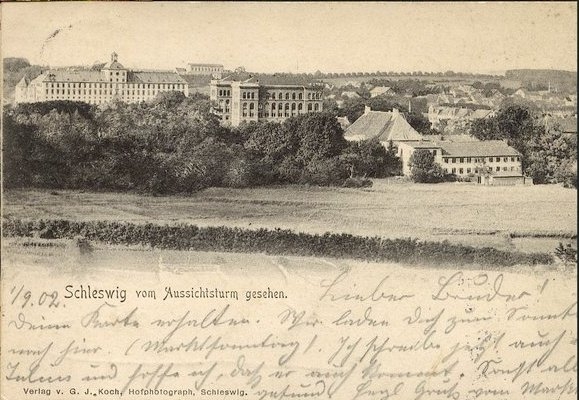 1/9 02. Schleswig vom Aussichtsturm gesehen. Lieber Bruder!
Deine Karte erhalten. Wir laden Dich zum Sonnt
nach hier. (Marktsonntag). Ich schreibe jetzt auch
Julius und hoffe ich daß er auch kommt. Sonst alles
gesund. Grüß vom
Verlag v. G. J. Koch, Hofphotograph, Schleswig.